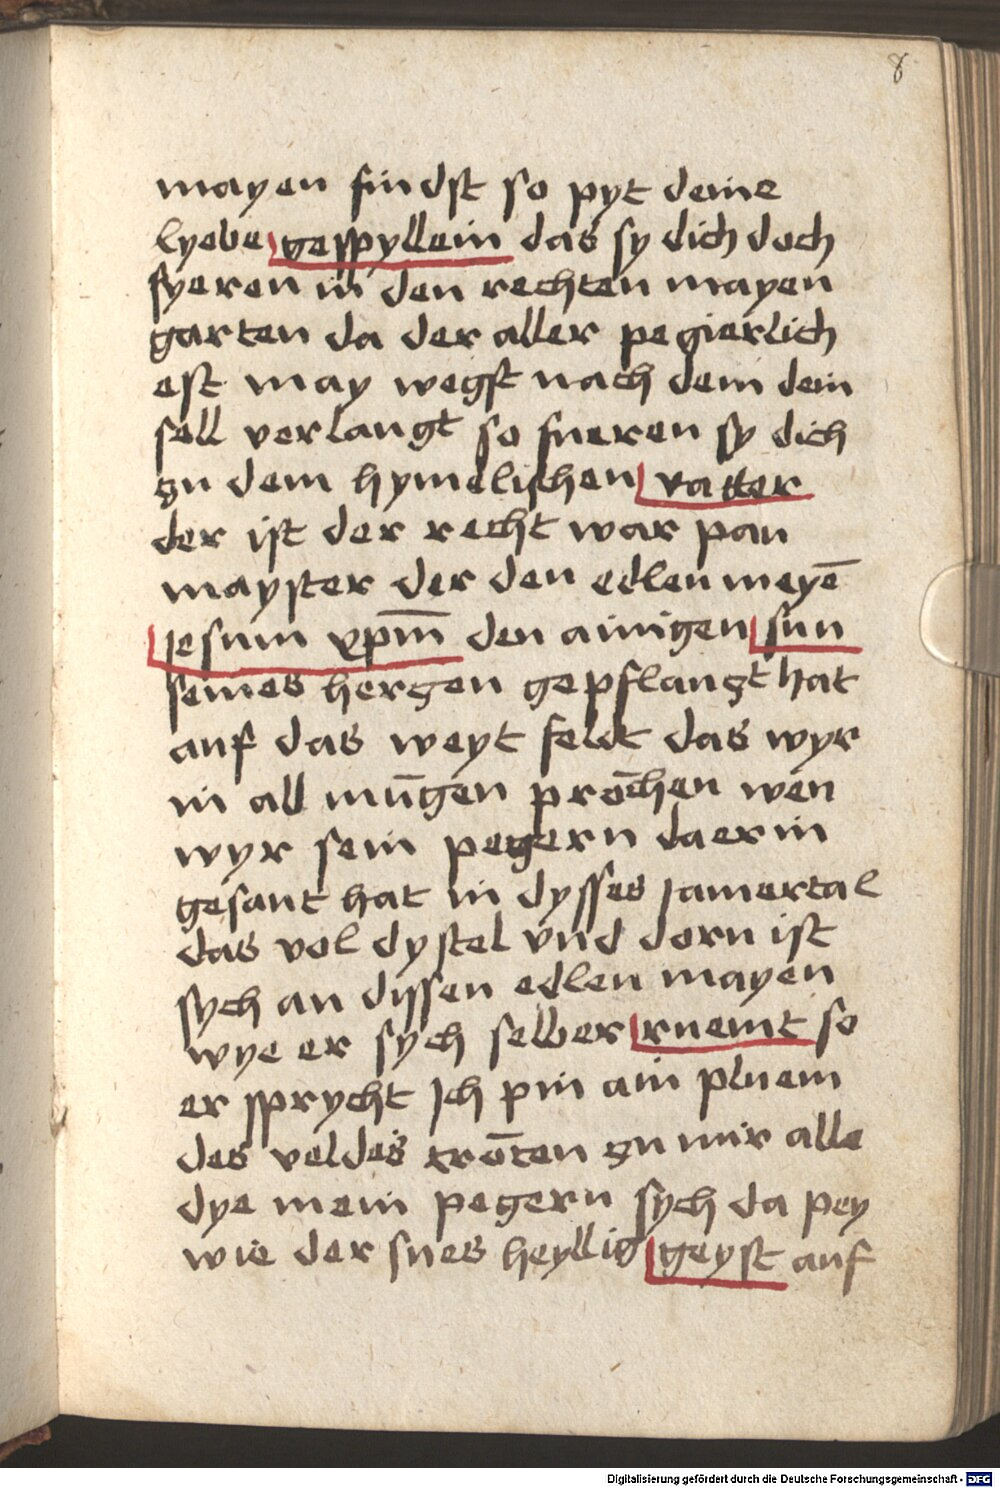 8
mayen findst so pyt deine
lyebe gespyllein das sy dich doch
fyeren in den rechten mayen
garten da der aller pegierlich
est may wegst nach dem dein
sell verlangt so fueren sy dich
zu dem hymelischen vatter
der ist der recht war pau
mayster der den edlen meyē
jesum xpm̄ den ainigen sun
seines herzen gepflanzt hat
auf das weyt feldt das wyr
in all mūgen prōchen wen
wyr sein pegern da er in
gesant hat in dysses jamertal
das vol dystel vnd dorn ist
sych an dissen edlen mayen
wye er sych selber ruemt so
er sprycht Ich pin ain pluem
des veldes trōten zu mir alle
dye mein pegern sych da pey
wie der sues heyllig geyst auf
Digitalisierung gefördert durch die Deutsche Forschungsgemeinschaft - DFG